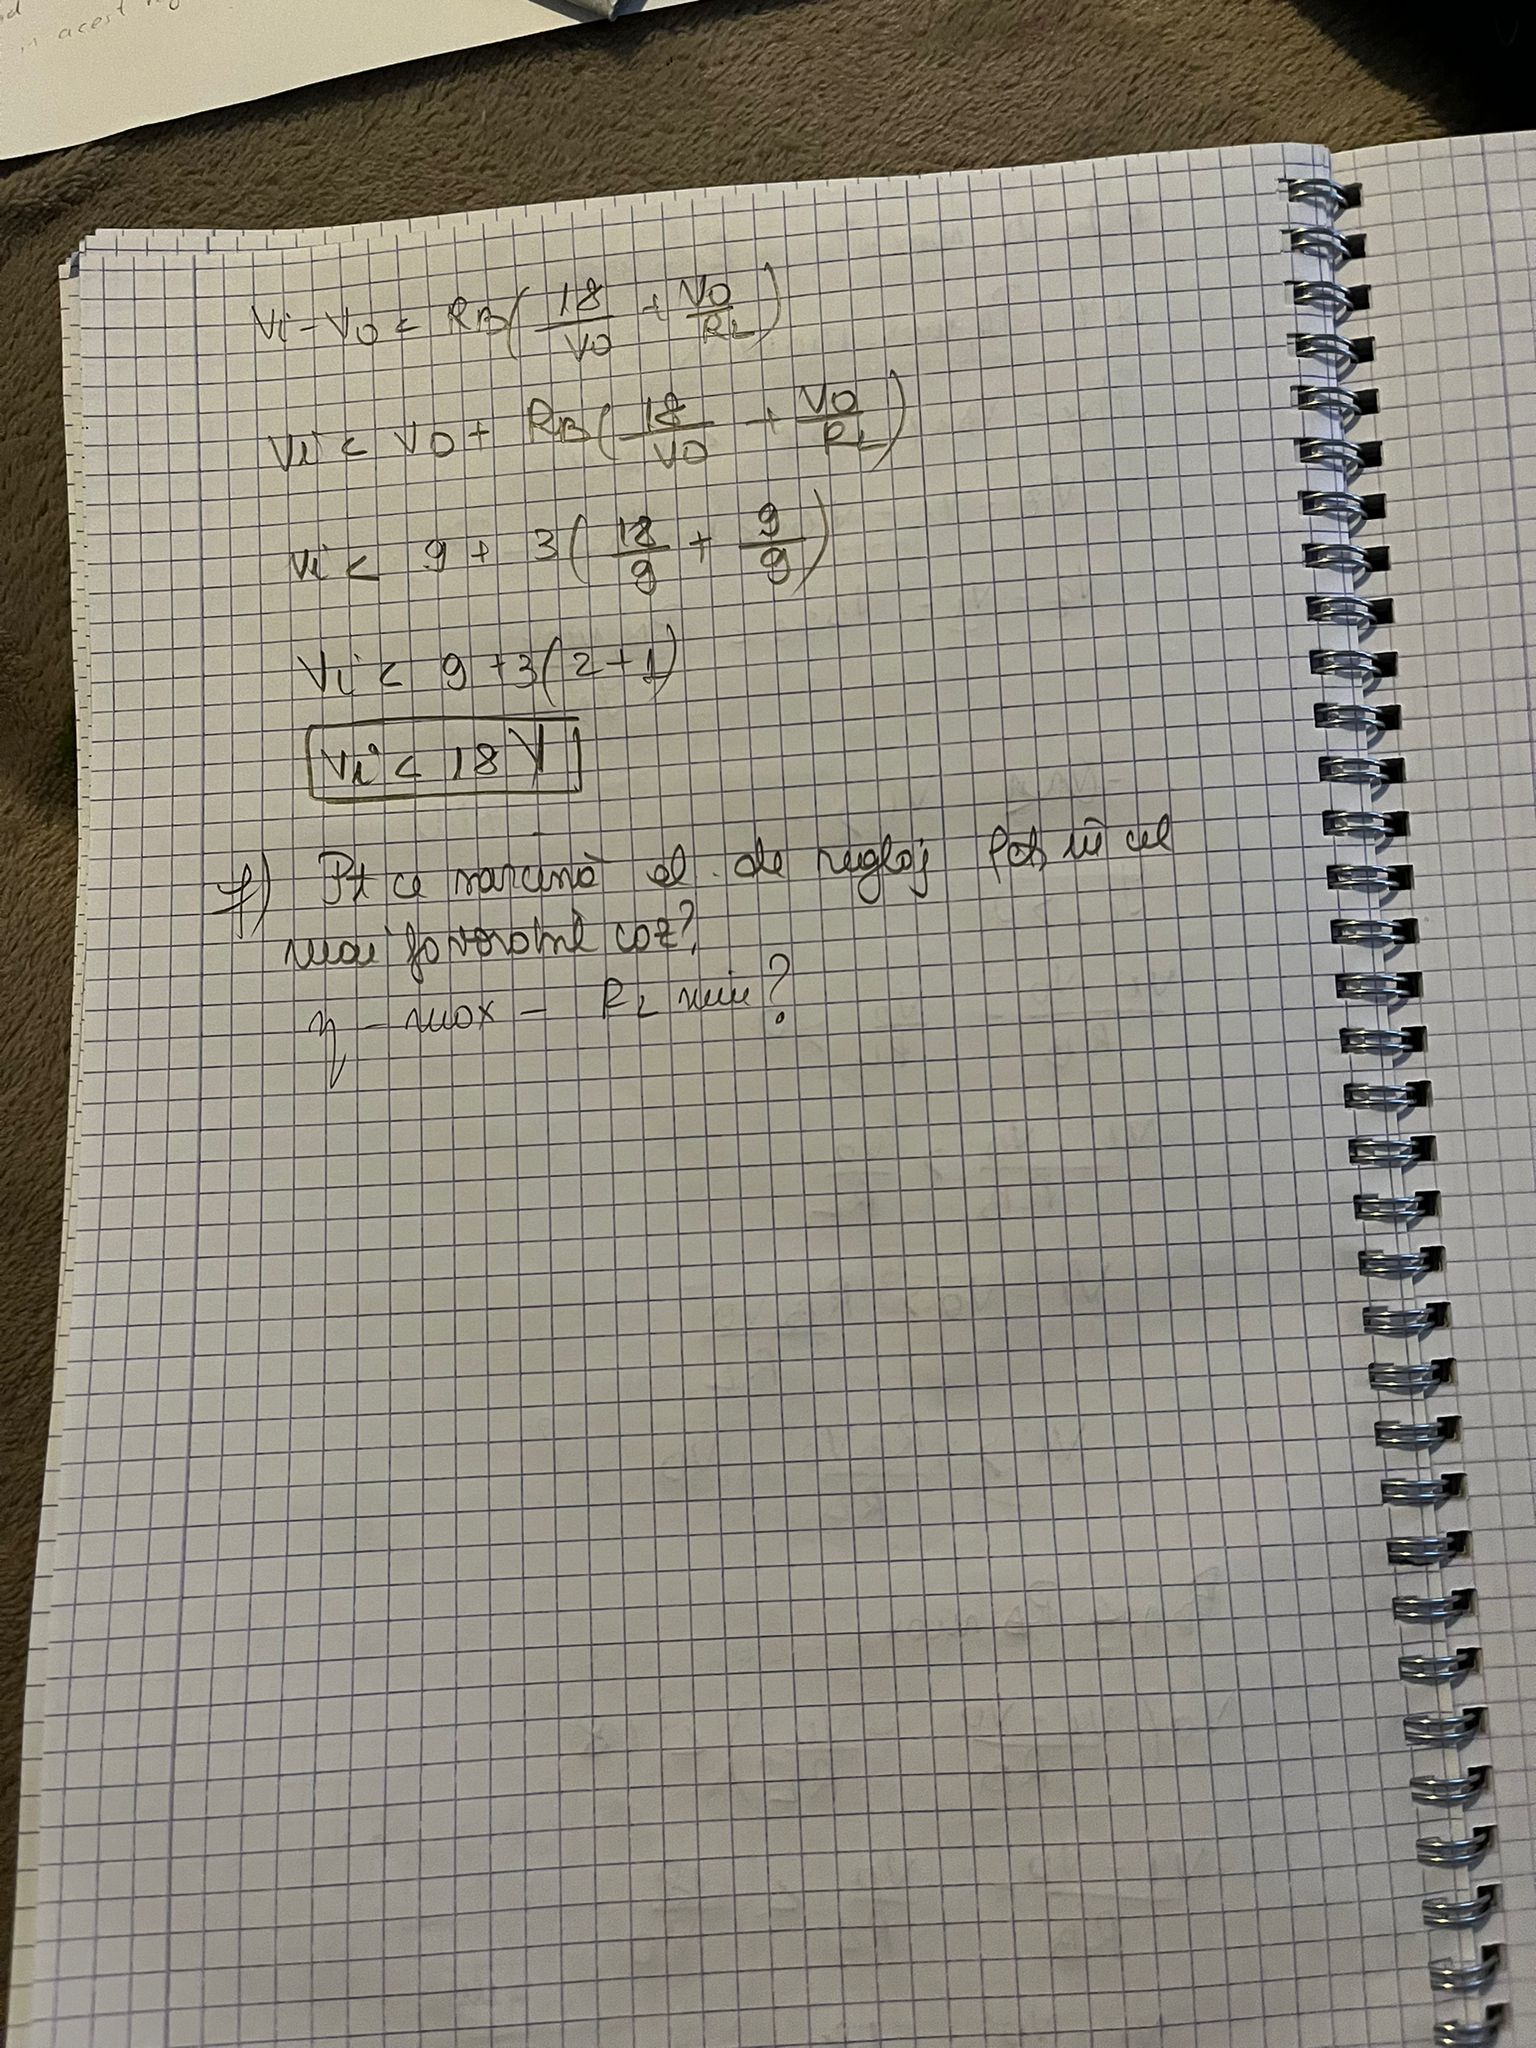 in acest
Vi - V0 < RB( 18/V0 + V0/RL )
Vi < V0 + RB( 18/V0 + V0/RL )
Vi < 9 + 3( 18/9 + 9/9 )
Vi < 9 + 3(2+1)
Vi < 18 V
f) Pt ce sarcină el. de reglaj în cel
mai favorabil caz?
η - max - RL min?